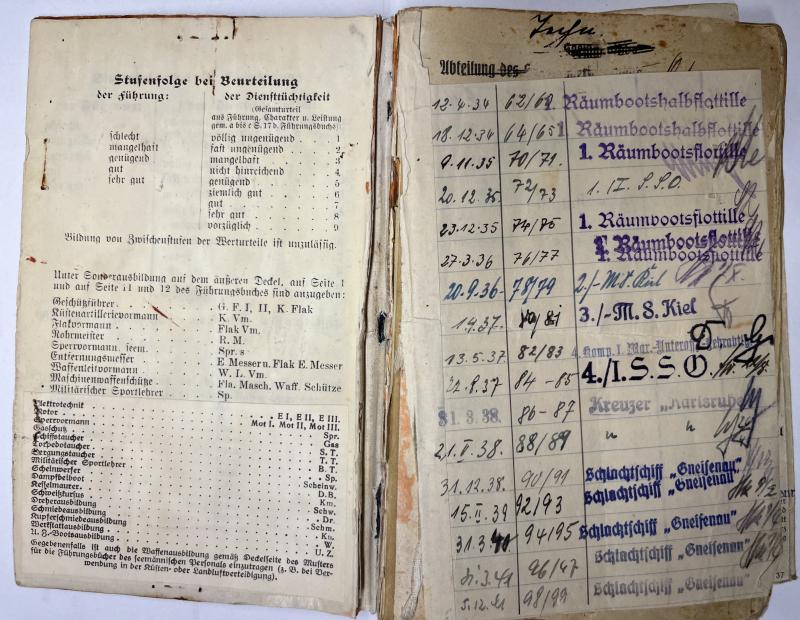 Stufenfolge bei Beurteilung
der Führung: der Diensttüchtigkeit
(Gesamturteil
aus Führung, Charakter u. Leistung
gem. a bis c S. 17 d. Führungsbuchs)
schlecht völlig ungenügend . 1
mangelhaft fast ungenügend . . 2
genügend mangelhaft . . . 3
gut nicht hinreichend . 4
sehr gut genügend . . . . 5
ziemlich gut . . . 6
gut . . . . . 7
sehr gut . . . . 8
vorzüglich . . . . 9
Bildung von Zwischenstufen der Werturteile ist unzulässig.
Unter Sonderausbildung auf dem äußeren Deckel, auf Seite 1
und auf Seite 11 und 12 des Führungsbuches sind anzugeben:
Geschützführer . . . . G. F. I, II, K. Flak
Küstenartillerievormann . . K. Vm.
Flakvormann . . . . Flak Vm.
Rohrmeister . . . . R. M.
Sperrvormann, seem. . . . Spr. s
Entfernungsmesser . . . E Messer u. Flak E. Messer
Waffenleitvormann . . . W. L. Vm.
Maschinenwaffenschütze . . Fla. Masch. Waff. Schütze
Militärischer Sportlehrer . . Sp.
Elektrotechnik . . . E I, E II, E III.
Motor . . . Mot I. Mot II, Mot III.
Sperrvormann . . . Spr.
Gasschutz . . . Gas
Schiffstaucher . . . S. T.
Torpedotaucher . . . T. T.
Bergungstaucher . . . B. T.
Militärischer Sportlehrer . . . Sp.
Scheinwerfer . . . Scheinw.
Dampfbeiboot . . . D. B.
Kesselmaurer . . . Km.
Schweißkursus . . . Schw.
Dreherausbildung . . . Dr.
Schmiedeausbildung . . . Schm.
Kupferschmiedeausbildung . . . Ku.
Werkstattausbildung . . . W.
U. Z.-Bootsausbildung . . . U. Z.
Gegebenenfalls ist auch die Waffenausbildung gemäß Deckelseite des Musters
für die Führungsbücher des seemännischen Personals einzutragen (z. B. bei Ver-
wendung in der Küsten- oder Landluftverteidigung).
Abteilung des
12.4.34 62/63 1 Räumbootshalbflottille
18.12.34 64/65 1 Räumbootshalbflottille
9.11.35 70/71. 1. Räumbootsflottille
20.12.35 72/73 1. II. S.S.O.
23.12.35 74/75 1. Räumbootsflottille
27.3.36 76/77 1. Räumbootsflottille
1. Räumbootsflottille
20.9.36 78/79 2./-M.S. Kiel
1.4.37. 80/81 3./-M. S. Kiel
13.5.37 82/83 4. Komp. I. Mar.-Unteroff.-Lehrabtlg.
22.8.37 84-85 4./I. S. S. O.
31.3.38. 86-87 Kreuzer „Karlsruhe"
21.II.38. 88/89 " "
31.12.38. 90/91 Schlachtschiff „Gneisenau"
15.II.39 92/93 Schlachtschiff „Gneisenau"
31.3.40 94/95 Schlachtschiff „Gneisenau"
.3.41 96/97 Schlachtschiff „Gneisenau"
5.12.41 98/99 Schlachtschiff „Gneisenau"
37